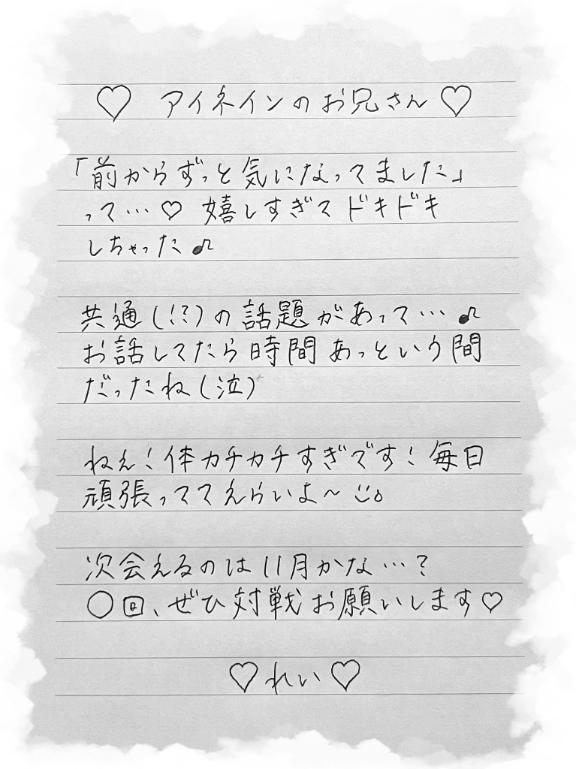 ♡ アイネインのお兄さん ♡
「前からずっと気になってました」
って…♡ 嬉しすぎてドキドキ
しちゃった♪
共通(!?)の話題があって…♪
お話してたら時間あっという間
だったね(泣)
ねぇ!体カチカチすぎです!毎日
頑張っててえらいよ〜
次会えるのは11月かな…?
○回、ぜひ対戦お願いします♡
♡れい♡